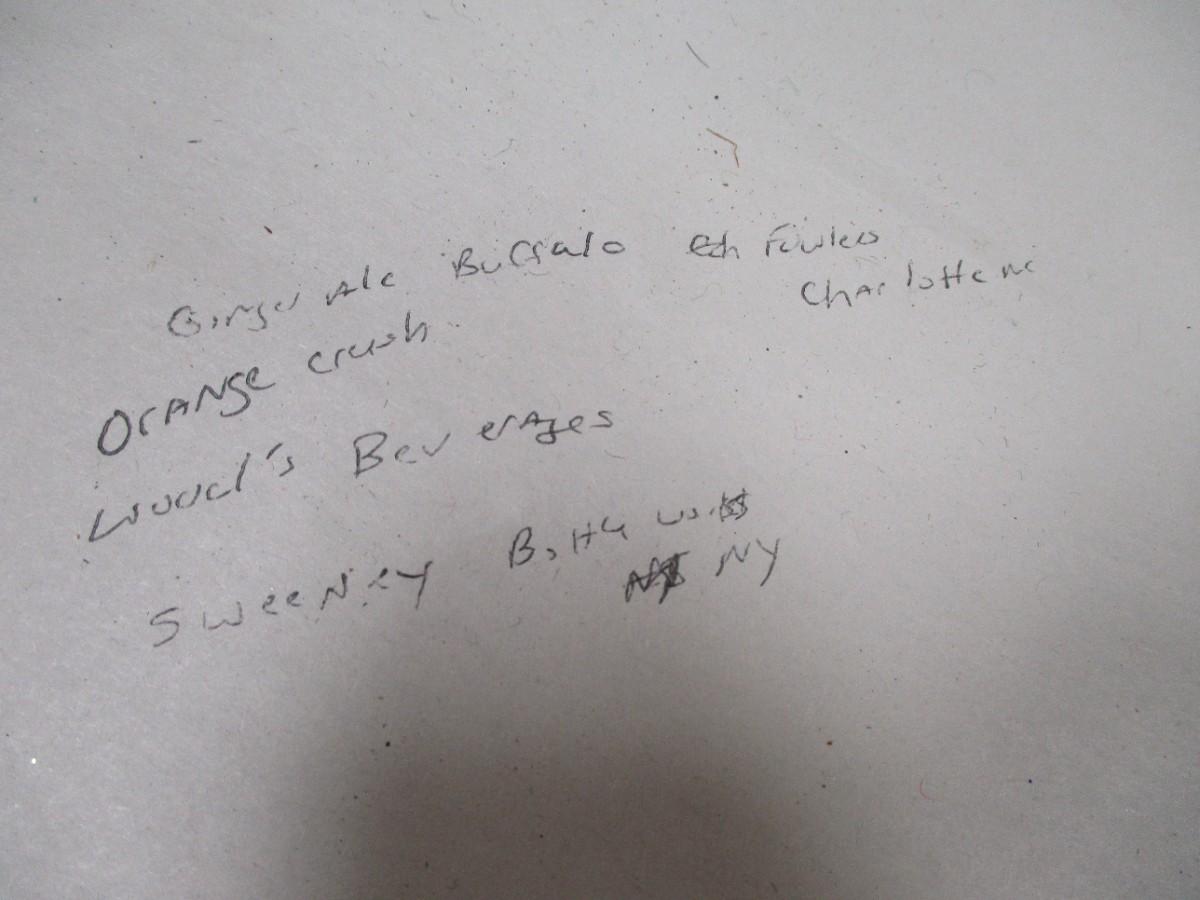 Ginger Ale Buffalo Fowler
Charlotte NC
Orange crush
Wood's Beverages
Sweeney Bottle
NY